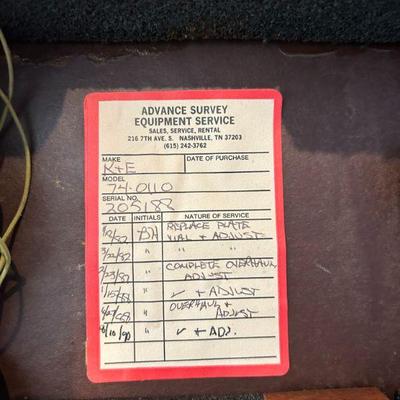 ADVANCE SURVEY
EQUIPMENT SERVICE
SALES, SERVICE, RENTAL
216 7TH AVE. S. NASHVILLE, TN 37203
(615) 242-3762
MAKE DATE OF PURCHASE
K+E
MODEL
74-0110
SERIAL NO.
205188
DATE INITIALS NATURE OF SERVICE
REPLACE PLATE
BH VIAL + ADJUST
3/22/82 " " "
COMPLETE OVERHAUL
2/23/87 " ADJUST
1/15/88 " ✓ + ADJUST
OVERHAUL +
" ADJUST
/10/90 " ✓ + ADJ.